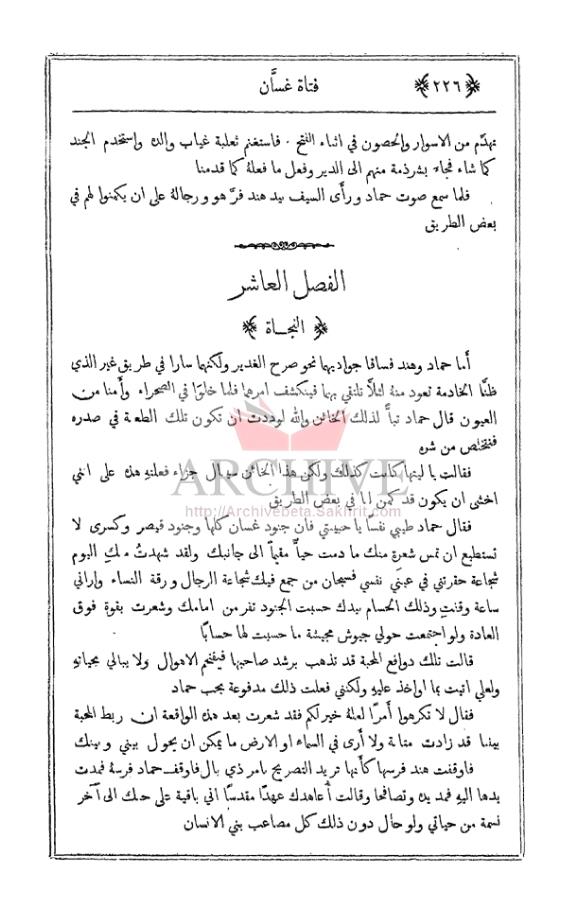 ﴿٢٢٦﴾ فتاة غسَّان
تهدّم من الاسوار والحصون في اثناء الفتح . فاستغنم ثعلبة غياب والده واستخدم الجند
كما شاء فجاء بشرذمة منهم الى الدير وفعل ما فعلهُ كما قدمنا
فلما سمع صوت حماد ورأى السيف بيد هند فرَّ هو ورجالهُ على ان يكمنوا لهم في
بعض الطريق
الفصل العاشر
﴿ النجاة ﴾
أما حماد وهند فساقا جواديهما نحو صرح الغدير ولكنهما سارا في طريق غير الذي
ظنَّا الخادمة تعود منهُ لئلاَّ تلتقي بهما فينكشف امرها فلما خلوَا في الصحراء وأَمنا من
العيون قال حماد تباً لذلك الخائن والله لوددت ان تكون تلك الطعنة في صدره
فنتخلص من شره
فقالت يا ليتها كانت كذلك ولكن هذا الخائن سينال جزاء فعلتهِ هذه على انني
اخشى ان يكون قد كمن لنا في بعض الطريق
ARCHIVE
http://Archivebeta.Sakhrit.com
فقال حماد طيبي نفساً يا حبيبتي فان جنود غسان كلها وجنود قيصر وكسرى لا
تستطيع ان تمس شعرة منك ما دمت حياً مقيماً الى جانبك ولقد شهدتُ منكِ اليوم
شجاعة حقرتني في عينَي نفسي فسبحان من جمع فيك شجاعة الرجال ورقة النساء واراني
ساعة وقفتِ وذلك الحسام بيدك حسبت الجنود تفر من امامك وشعرت بقوة فوق
العادة ولو اجتمعت حولي جيوش مجيشة ما حسبت لها حسابًا
قالت تلك دوافع المحبة قد تذهب برشد صاحبها فيقتحم الاهوال ولا يبالي بحياتهِ
ولعلي اتيت بما اواخذ عليهِ ولكنني فعلت ذلك مدفوعة بحب حماد
فقال لا تكرهوا أمرًا لعلهُ خير لكم فقد شعرت بعد هذه الواقعة ان ربط المحبة
بيننا قد زادت متانة ولا أرى في السماء او الارض ما يمكن ان يحول بيني وبينك
فاوقفت هند فرسها كأنها تريد التصريح بامر ذي بال فاوقف حماد فرسهُ فمدت
يدها اليهِ فمد يده وتصافحا وقالت أعاهدك عهدًا مقدسًا اني باقية على حبك الى آخر
نسمة من حياتي ولو حال دون ذلك كل مصاعب بني الانسان